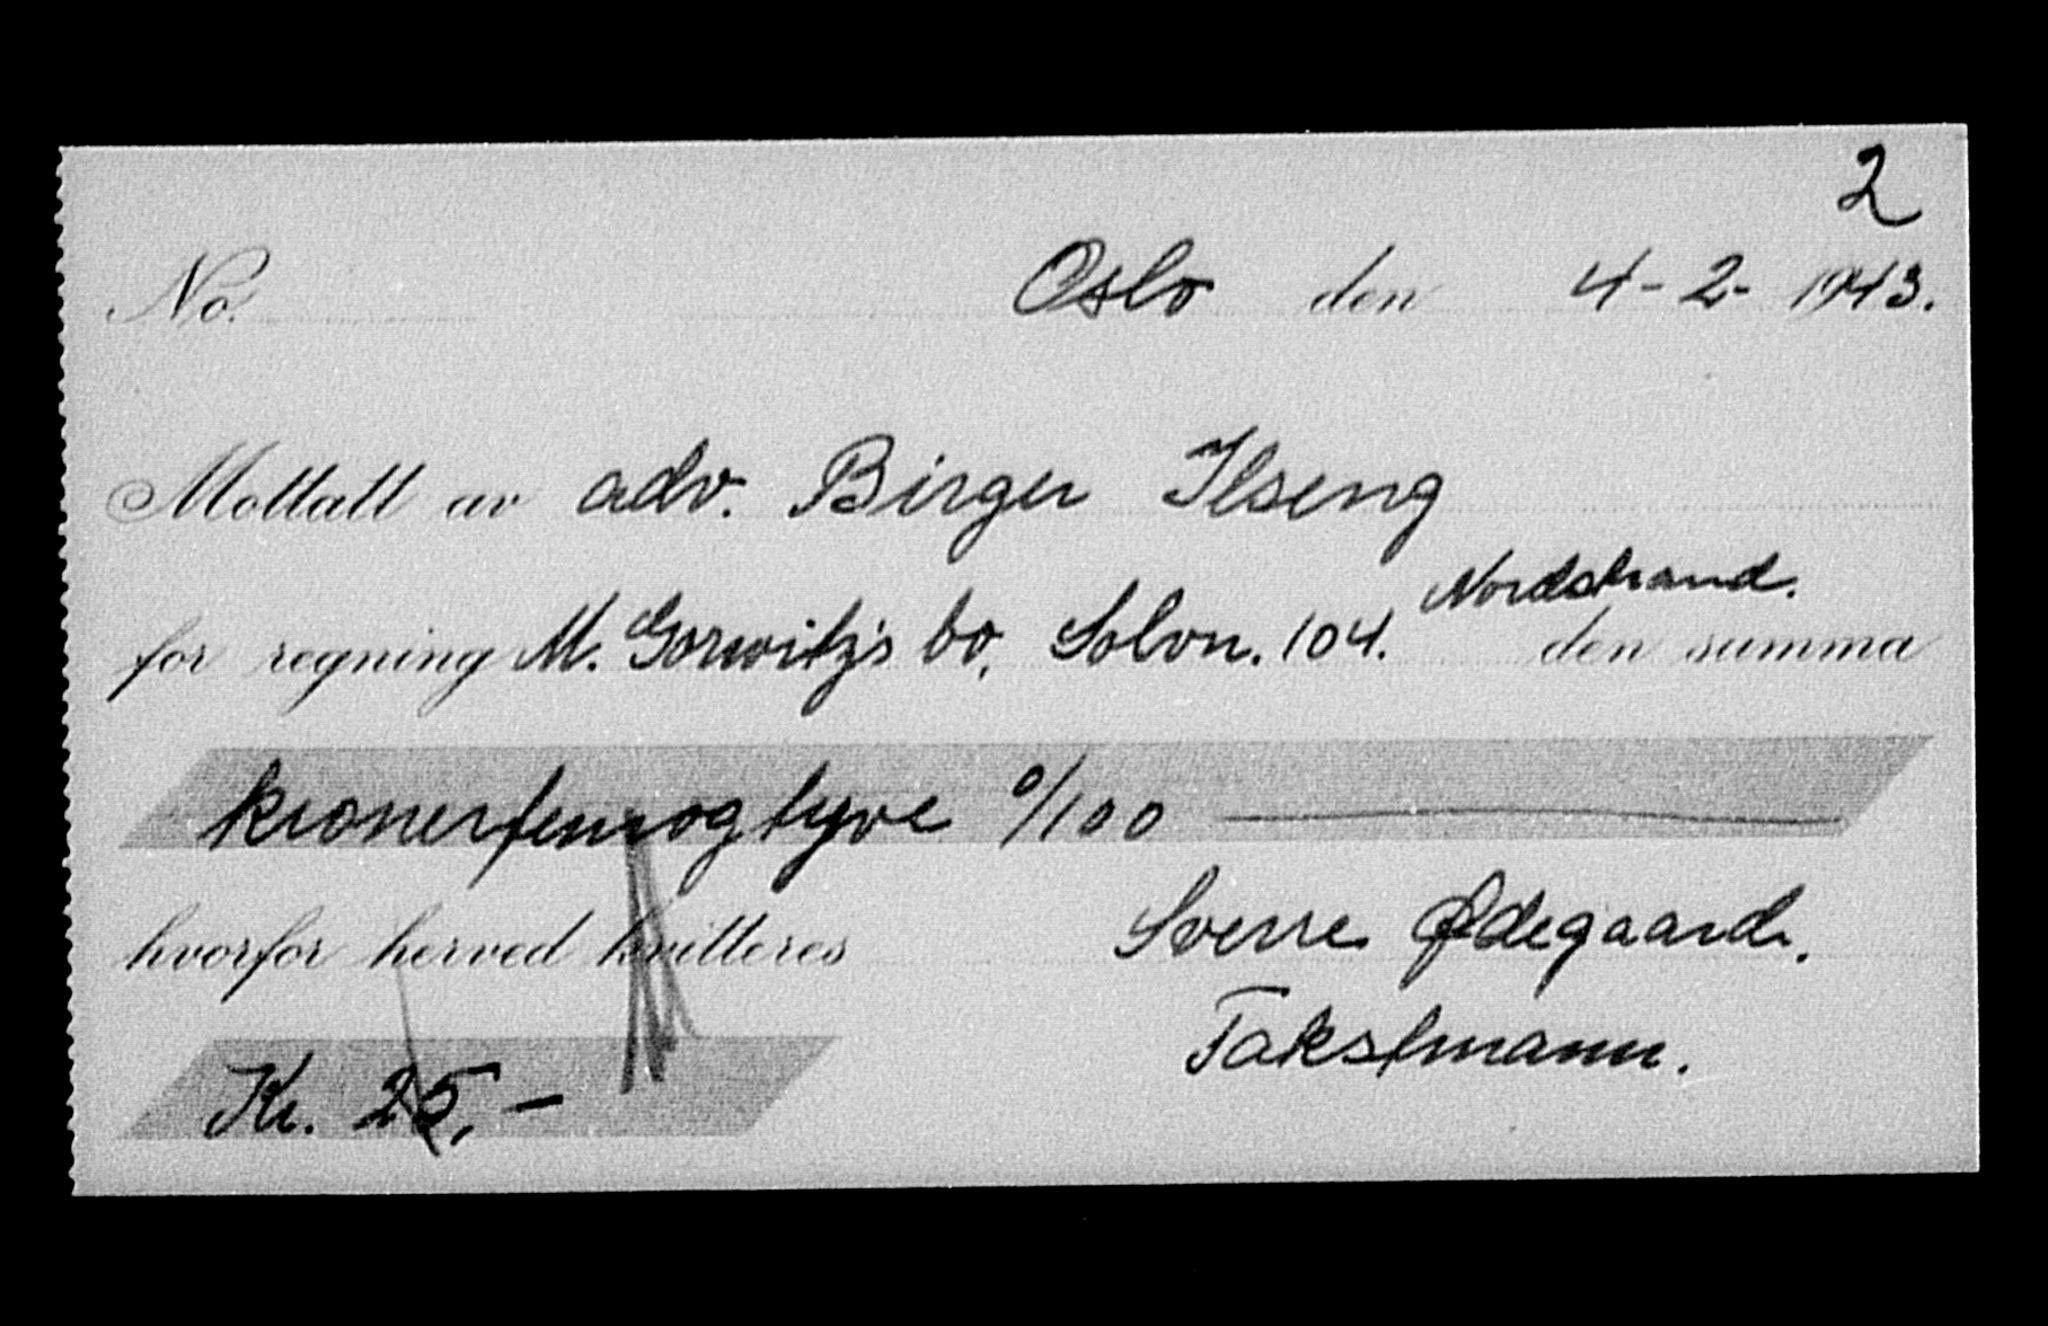 2
No. Oslo den 4-2-1943.
Mottatt av adv. Birger Ilseng
Nordstrand.
for regning M. Gorwitz's bo, Solvn. 104. den summa
kroner femogtyve 0/100
hvorfor herved kvitteres Sverre Ødegaard.
Takstmann.
Kr. 25,-